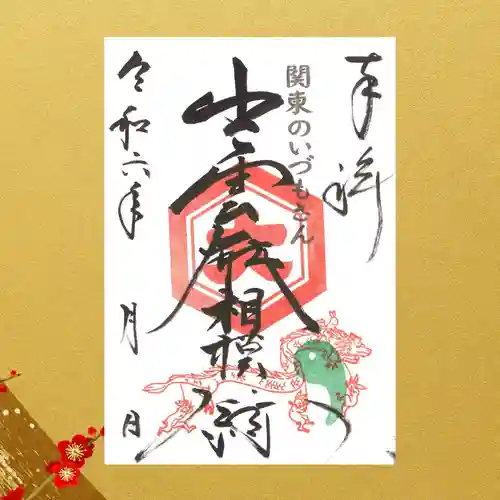 奉拝
関東のいづもさん
出雲大社相模分祠
令和六年 月 日